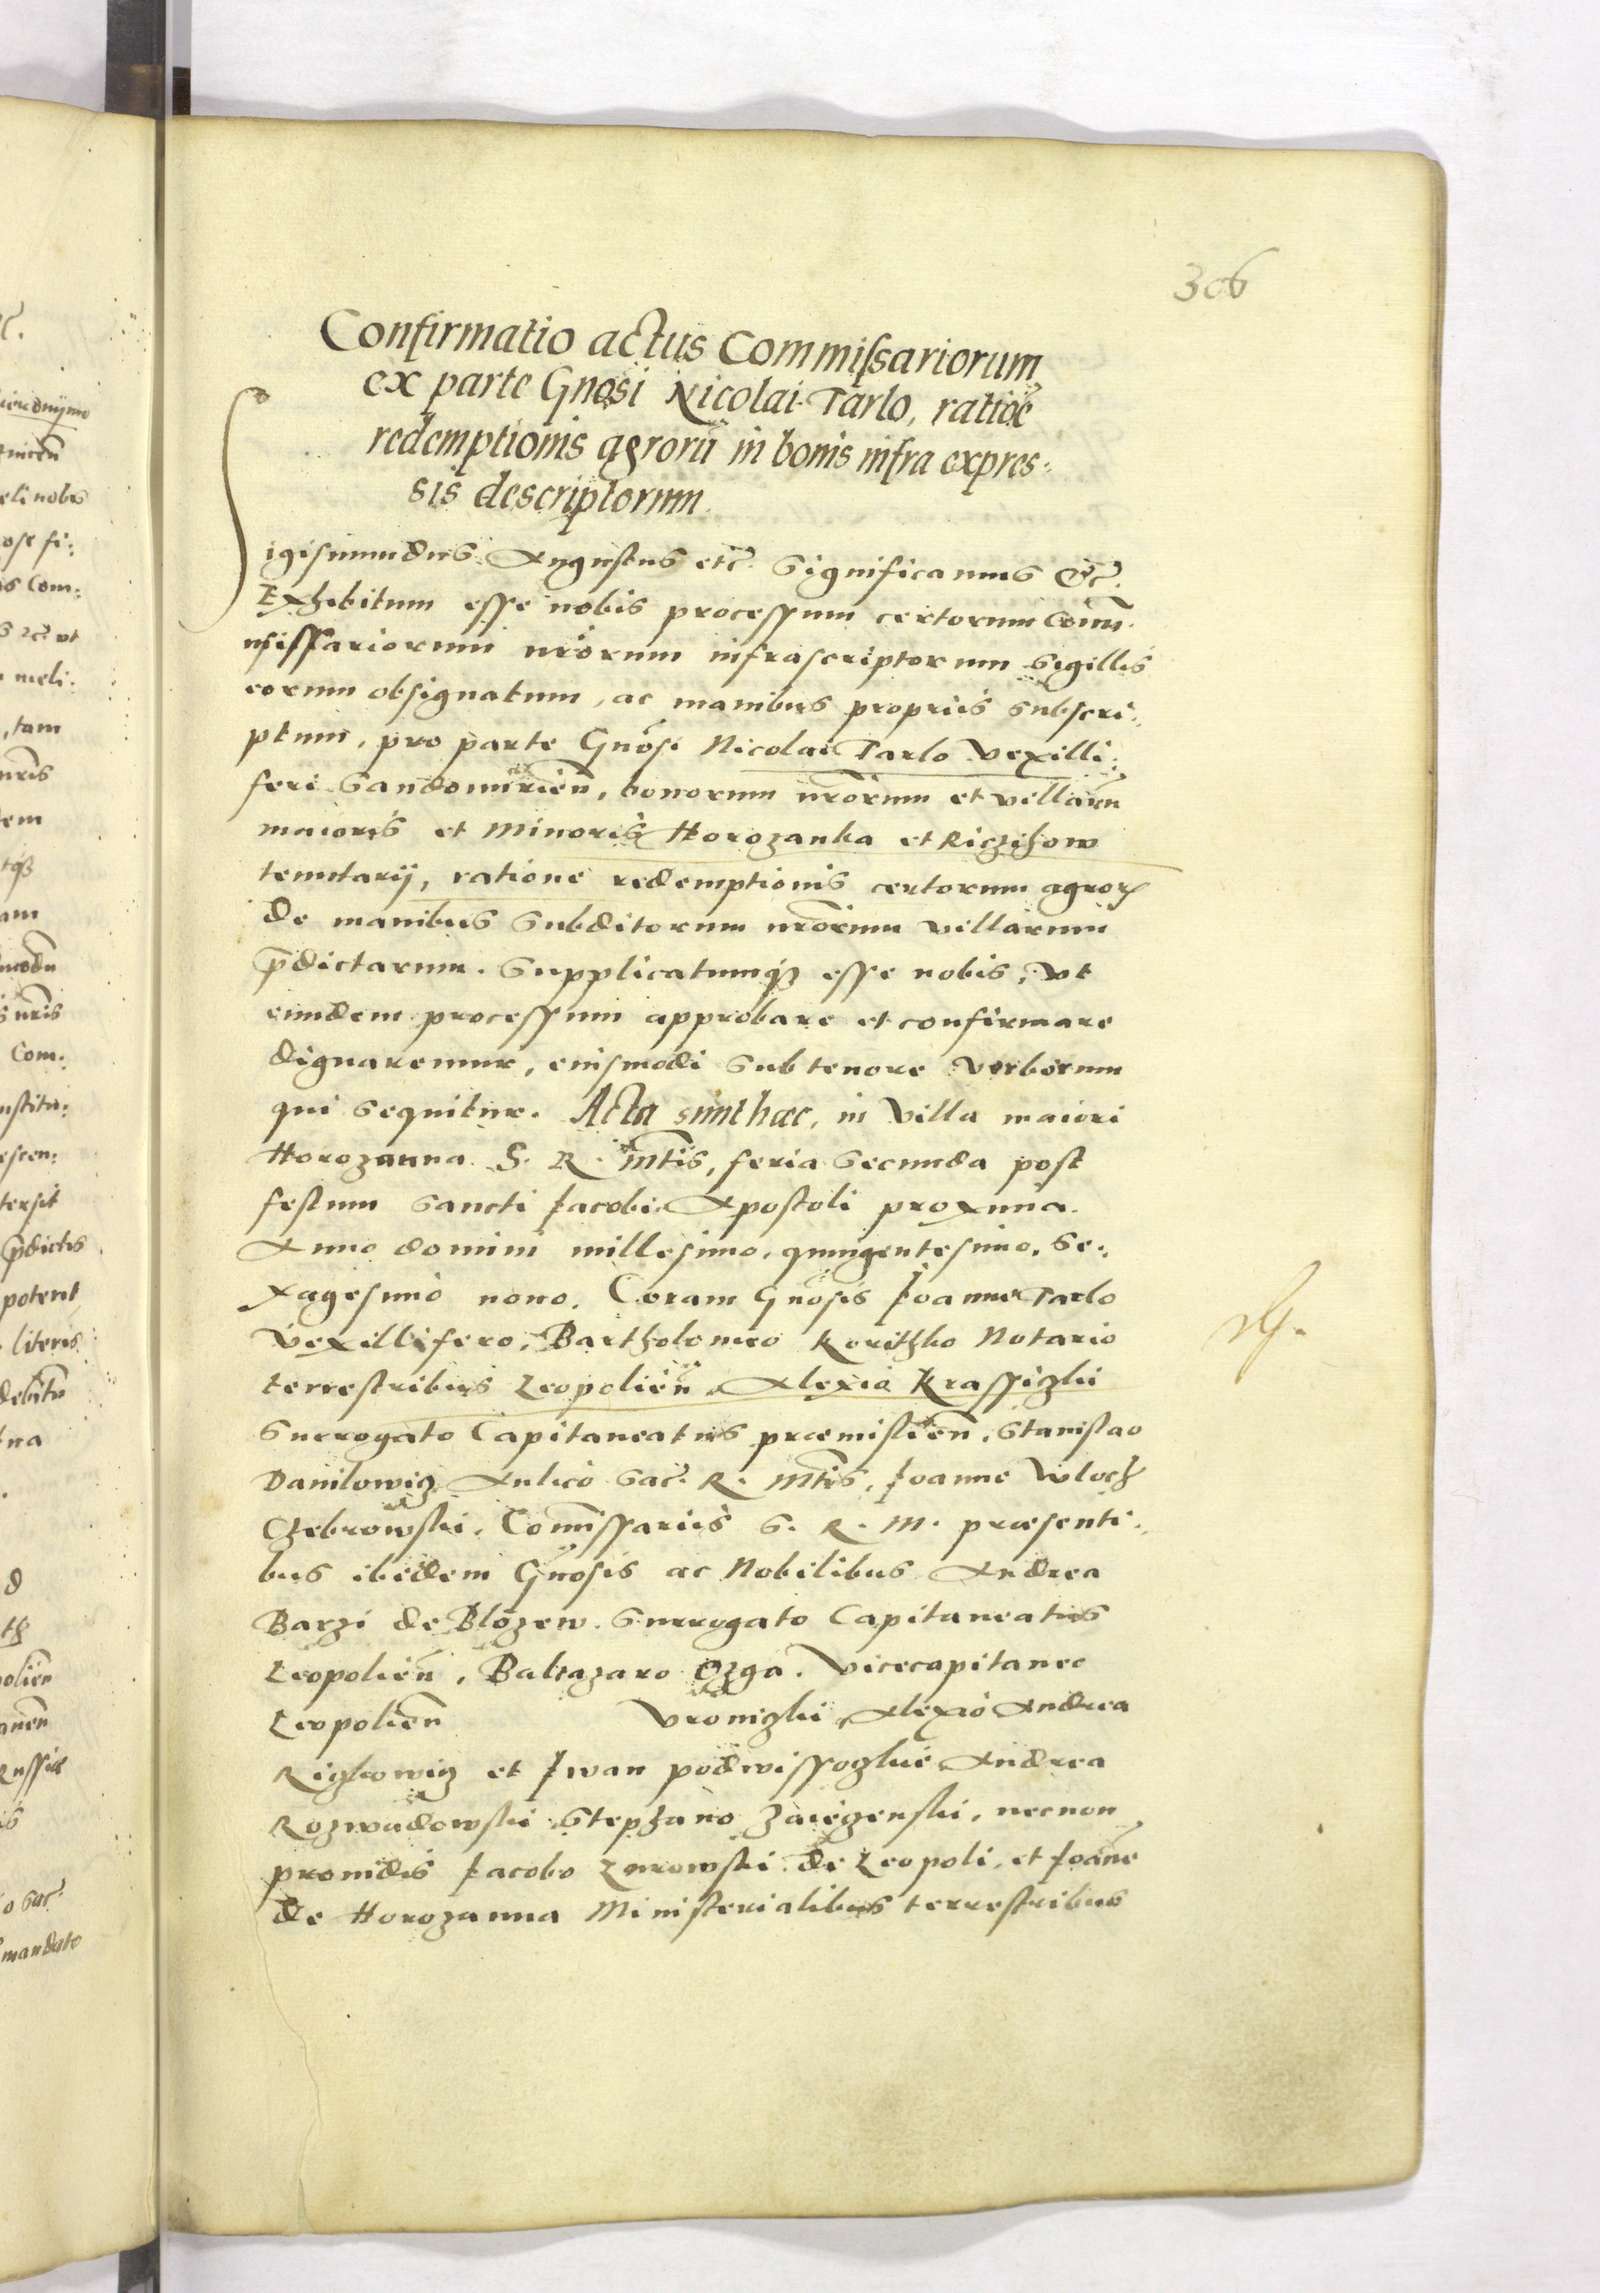 306
Confirmatio actus Commissariorum
ex parte Gnosi Nicolai Tarlo, ratioe
redemptionis agrorū in bonis infra expres:
sis descriptorum.
Sigismundus Augustus etc. Significamus etc.
Exhibitum esse nobis processum certorum Com̄
missariorum nrorum infrascriptorum sigillis
eorum obsignatum, ac manibus propriis subscri:
ptum, pro parte Gnosi Nicolai Tarlo Vexilli:
feri Sandomirien̄, bonorum nrorum et villarū
maioris et Minoris Horozanka et Riczihow
tenutarij, ratione redemptionis certorum agror
de manibus subditorum nrorum villarum
p̄dictarum. Supplicatumq3 esse nobis, vt
eundem processum approbare et confirmare
dignaremur, eiusmodi sub tenore verborum
qui sequitur. Acta sunt haec, in villa maiori
Horozanna S. R. Mtis, feria secunda post
festum sancti Jacobi Apostoli proxima.
Anno domini millesimo, quingentesimo, se:
xagesimo nono. Coram Gnosis Joanne Tarlo
Vexillifero, Bartholomeo Koritzko Notario
terrestribus Leopolien̄, Alexio Krassiczki
Surrogato Capitaneatus praemislien̄, Stanislao
Danilowicz Aulico Sac. R. Mtis, Joanne Wloch
Czebrowski, Com̄issariis S. R. M. praesenti:
bus ibidem Gnosis ac Nobilibus Andrea
Barzi de Blozew Surrogato Capitaneatus
Leopolien̄, Baltazaro Ozga, Vicecapitaneo
Leopolien̄ Vroniczki Alexio Andrea
Riczkowicz et Iwan podwissoczkie Andrea
Rozwadowski Stephano Zaiezenski, necnon
prouidis Jacobo Zurowski de Leopoli, et Joāne
de Horozanna Ministerialibus terrestribus